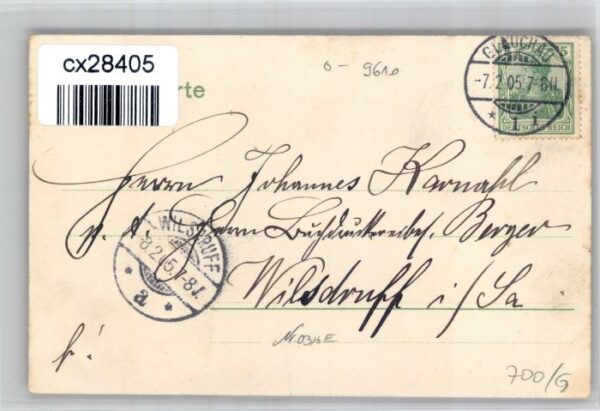 cx28405
rte
o – 9610
GLAUCHAU
-7.2.05.7-8N.
* 1 i
5
DEUTSCHES REICH
Herrn Johannes Karnahl
p. A. Herrn Buchdruckereibes. Berger
Wilsdruff i/Sa
WILSDRUFF
8.2.05.7-8V.
* a *
fr!
No 0316E
700/G